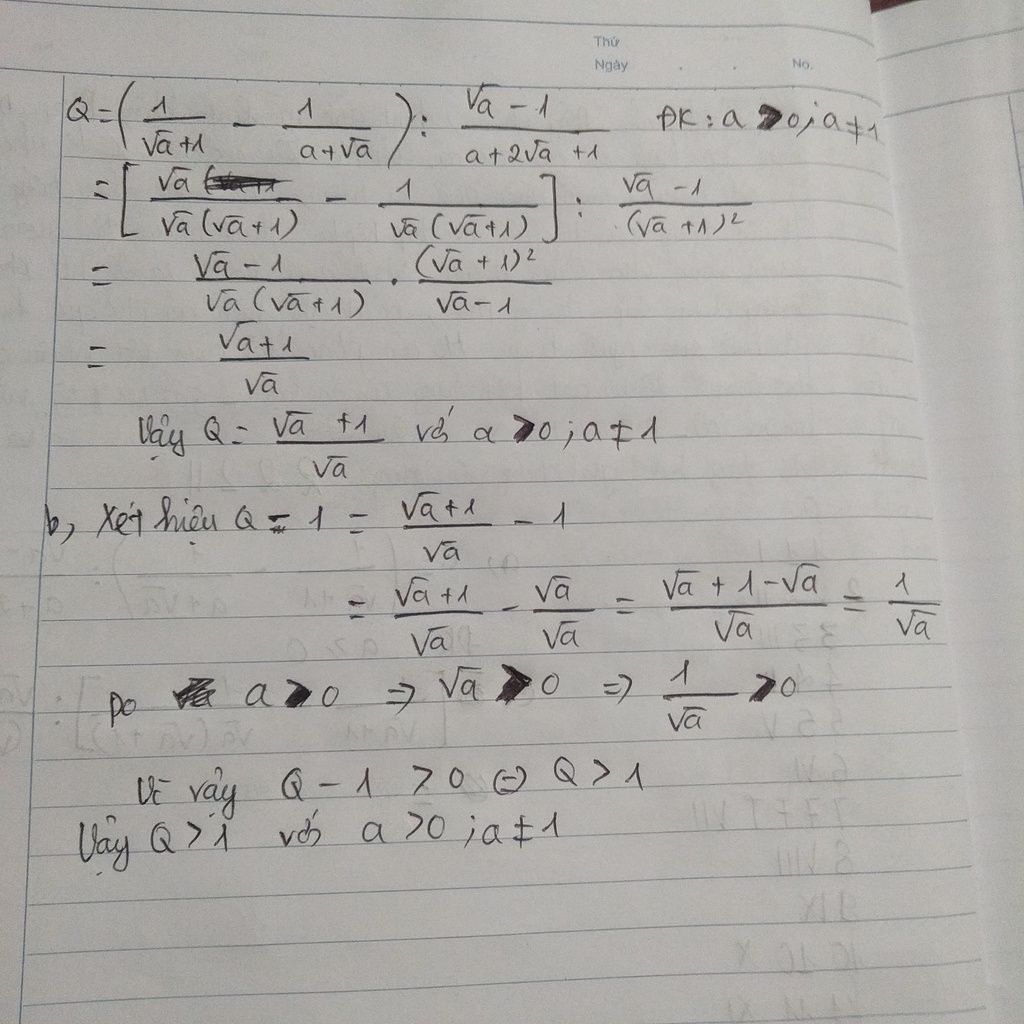 Thứ
Ngày . . No.
Q = (1/(√a+1) − 1/(a+√a)) : (√a − 1)/(a+2√a +1) ĐK : a > 0 ; a ≠ 1
= [√a/(√a(√a+1)) − 1/(√a(√a+1))] : (√a −1)/(√a +1)²
= (√a − 1)/(√a(√a+1)) . (√a + 1)²/(√a−1)
= (√a+1)/√a
Vậy Q = (√a +1)/√a với a > 0 ; a ≠ 1
b, Xét hiệu Q − 1 = (√a+1)/√a − 1
= (√a+1)/√a − √a/√a = (√a + 1 − √a)/√a = 1/√a
Do a > 0 ⇒ √a > 0 ⇒ 1/√a > 0
Vì vậy Q − 1 > 0 ⇔ Q > 1
Vậy Q > 1 với a > 0 ; a ≠ 1